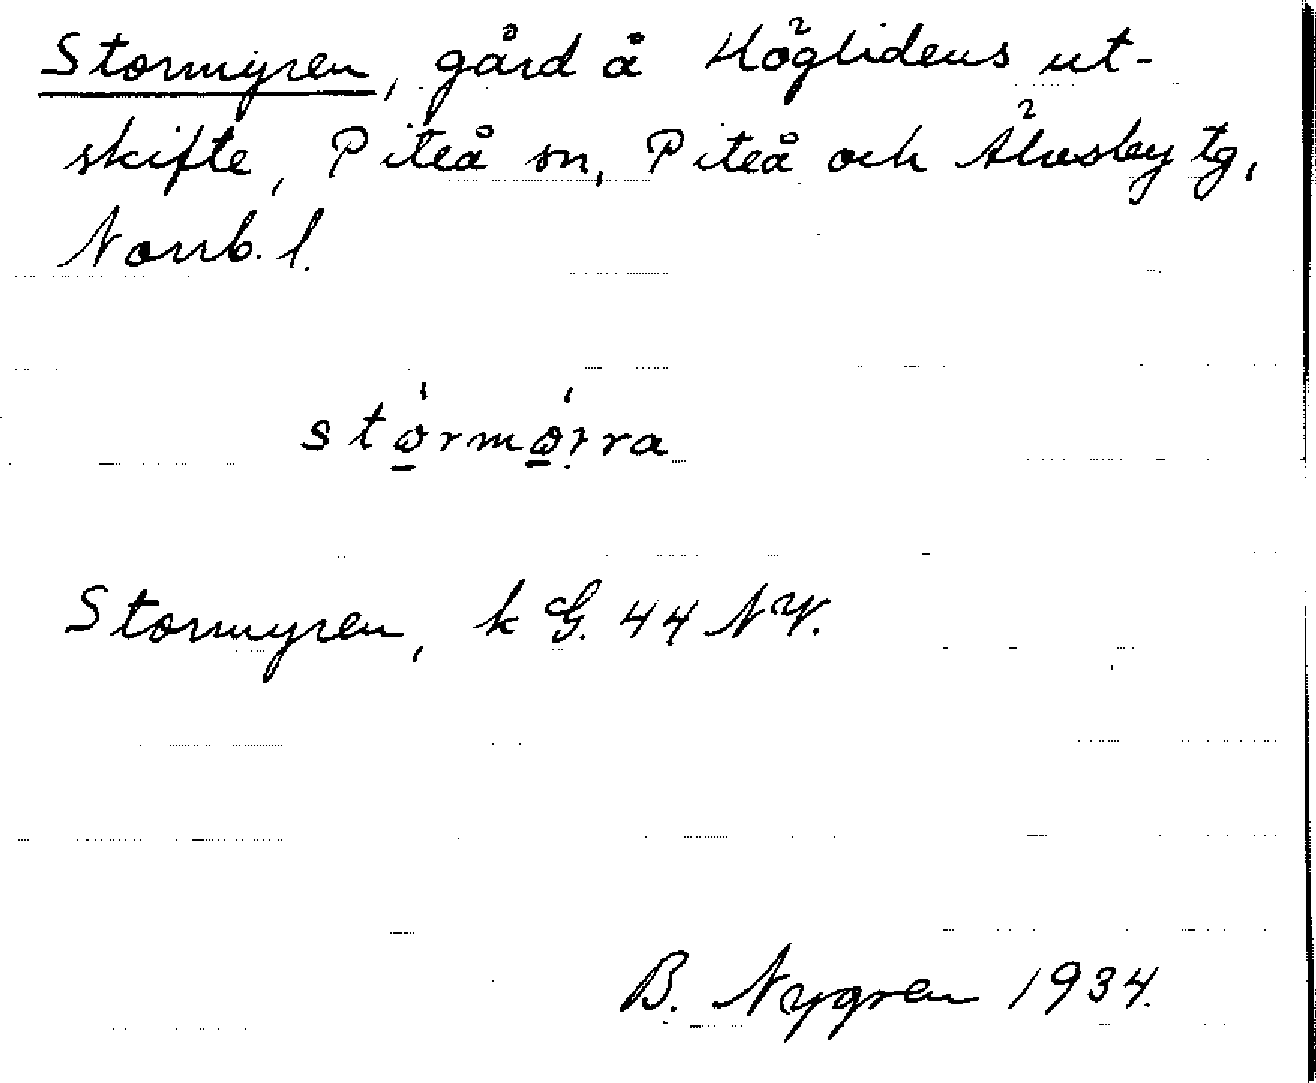 Stormyren, gård å Höglidens ut-
skifte, Piteå sn, Piteå och Älvsby tg,
Norrb. l.
Stormyren, k G. 44 NV.
B. Nygren 1934.